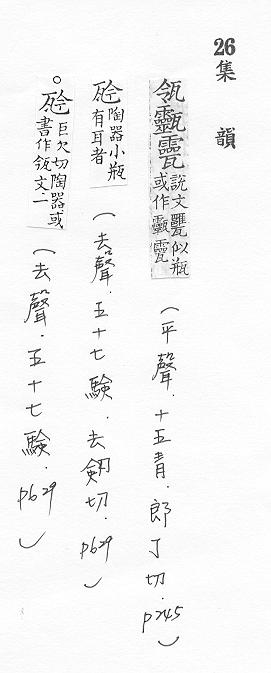 26
集韻
瓴𤮹䨩 說文𦉥似瓶或作𤮹䨩（平聲．十五青．郎丁切．p245）
陶器小瓶有耳者（去聲．五十七驗．去劒切．p629）
○ 巨欠切陶器或書作瓴文二（去聲．五十七驗．p629）